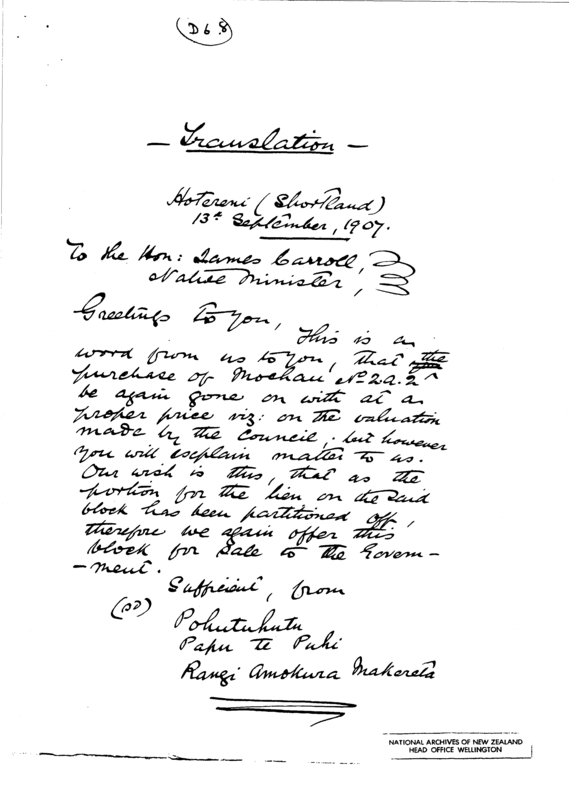 D 6.8
- Translation -
Hotereni (Shortland)
13th September, 1907.
To the Hon: James Carroll,
Native Minister,
Greetings to you, This is a
word from us to you, that the
purchase of Moehau No 2a.2
be again gone on with at a
proper price viz: on the valuation
made by the Council; but however
you will explain matter to us.
Our wish is this, that as the
portion for the lien on the said
block has been partitioned off,
therefore we again offer this
block for Sale to the Govern-
-ment.
Sufficient, from
Pohutuhutu
Papu Te Puhi
Rangi Amokura Makereta
NATIONAL ARCHIVES OF NEW ZEALAND
HEAD OFFICE WELLINGTON